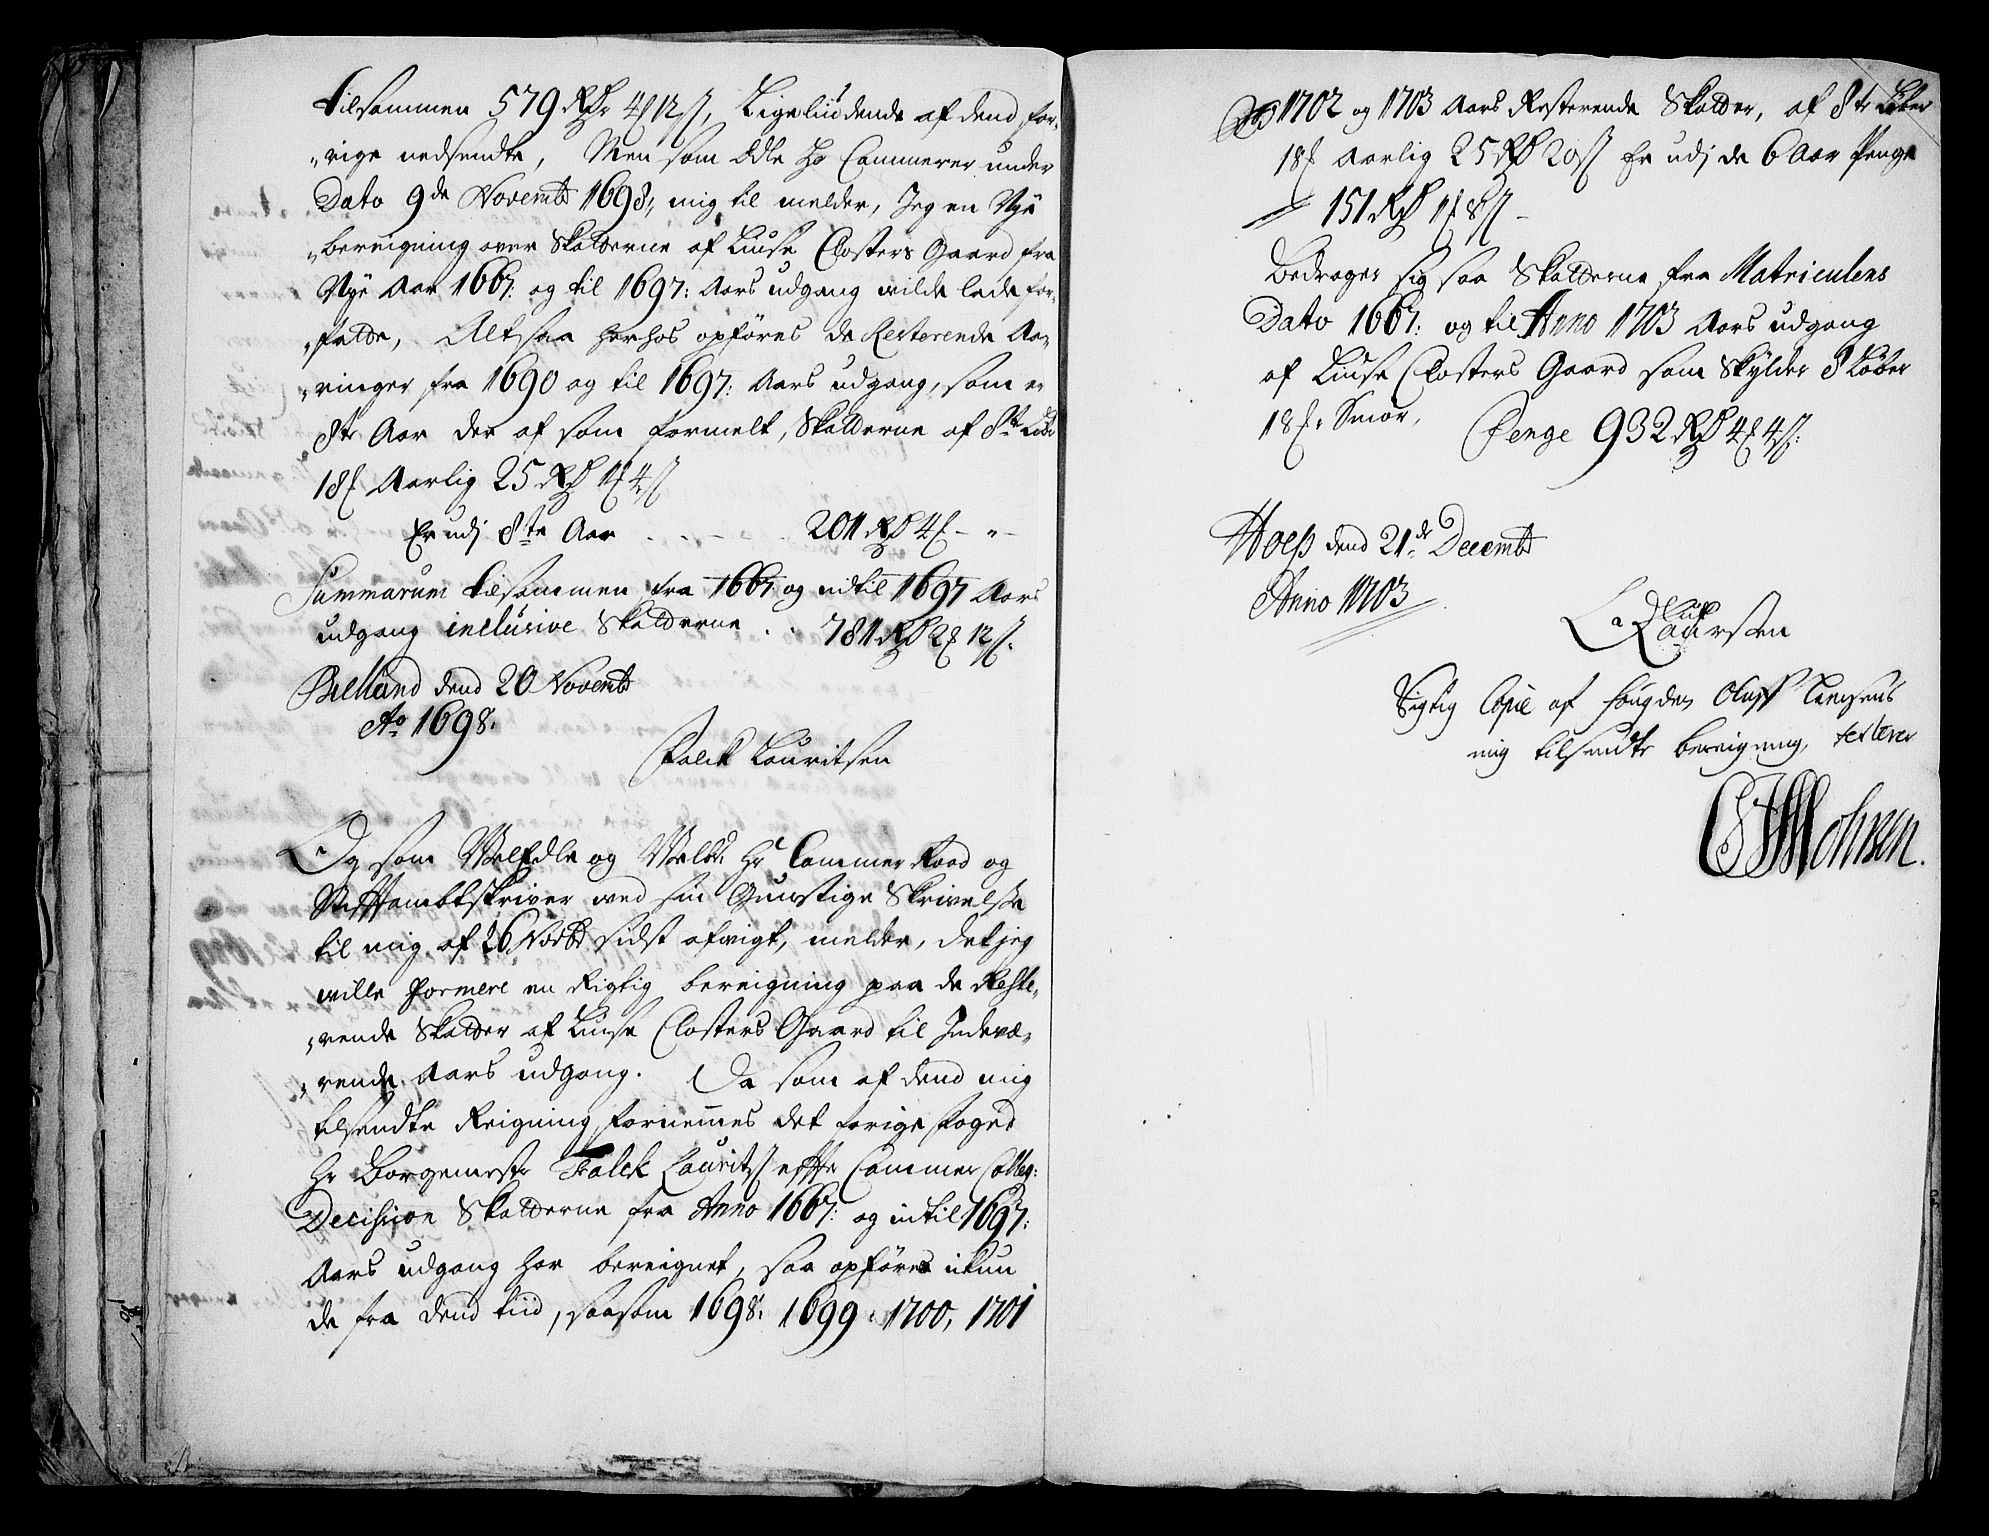 tilsammen 579 Rdr 4 12 s, Ligeliüdende af dend for-
rige nedsendte, Men som Edle Hr Cammerer under
Dato 9de Novembr 1698, mig til melder, Jeg en Nye
bereigning over Skatterne af Liuse Closters Gaard fra
Nye Aar 1667: og til 1697: Aars udgang vilde lade for-
fatte, Altsaa herhos opføres de Resterende Aa-
ringer fra 1690 og til 1697: Aars udgang, som er
8te Aar der af som formelt, Skatterne af 8te Løber
18 Aarlig 25 Rd 1 4 s
Er udj 8te Aar . . . . 201 Rd 4 - " -
Summarum tilsammen fra 1667 og indtil 1697 Aars
udgang inclusive Skatterne . . 781 Rd 2 12 s.
Bielland dend 20 Novembr
Ao 1698.
Falck Lauritsen
Og som WelEdle og Welb: Hr Cammer Raad og
Stifftambtskriver med sin Gunstige Skrivelse
til mig af 26 Novbr sidst afvigt, melder, det jeg
wille formere en Rigtig bereigning paa de Reste-
rende Skatter af Liuse Closters Gaard til Indevæ-
rende Aars udgang. Da som af dend mig
tilsendte Reigning fornemmes det forige foged
Hr Borgemester Falck Lauritz effter Cammer Colleg:
Decision Skatterne fra Anno 1667: og indtil 1697:
Aars udgang har bereignet, saa opføres ikun
de fra dend tiid, saasom 1698. 1699. 1700, 1701
1702 og 1703 Aars Resterende Skatter, af 8te Løber
18 Aarlig 25 Rd 20 s Er udj de 6 Aar Penge
151 Rd 1 8 s -
Bedrager sig saa Skatterne fra Matriculens
Dato 1667: og til Anno 1703 Aars udgang
af Liuse Closters Gaard som Skylder 8 Løber
18 Smør, Penge 932 Rd 4 4 s:
Hoep dend 21de Decembr
Anno 1703
Laursen
Rigtig Copie af fougden Oluff Larsens
mig tilsendte bereigning, testerer